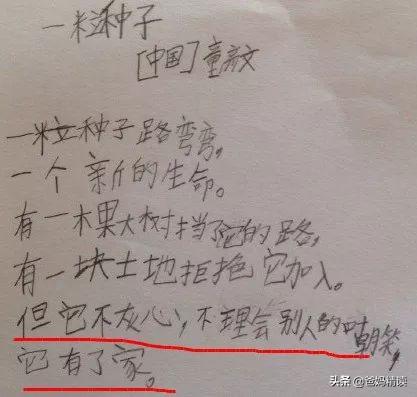 一粒种子
[中国]童齐文
一粒种子路弯弯,
一个新的生命。
有一棵大树挡了它的路,
有一块土地拒绝它加入。
但它不灰心,不理会别人的嘲笑,
它有了家。
头条 @爸妈精读